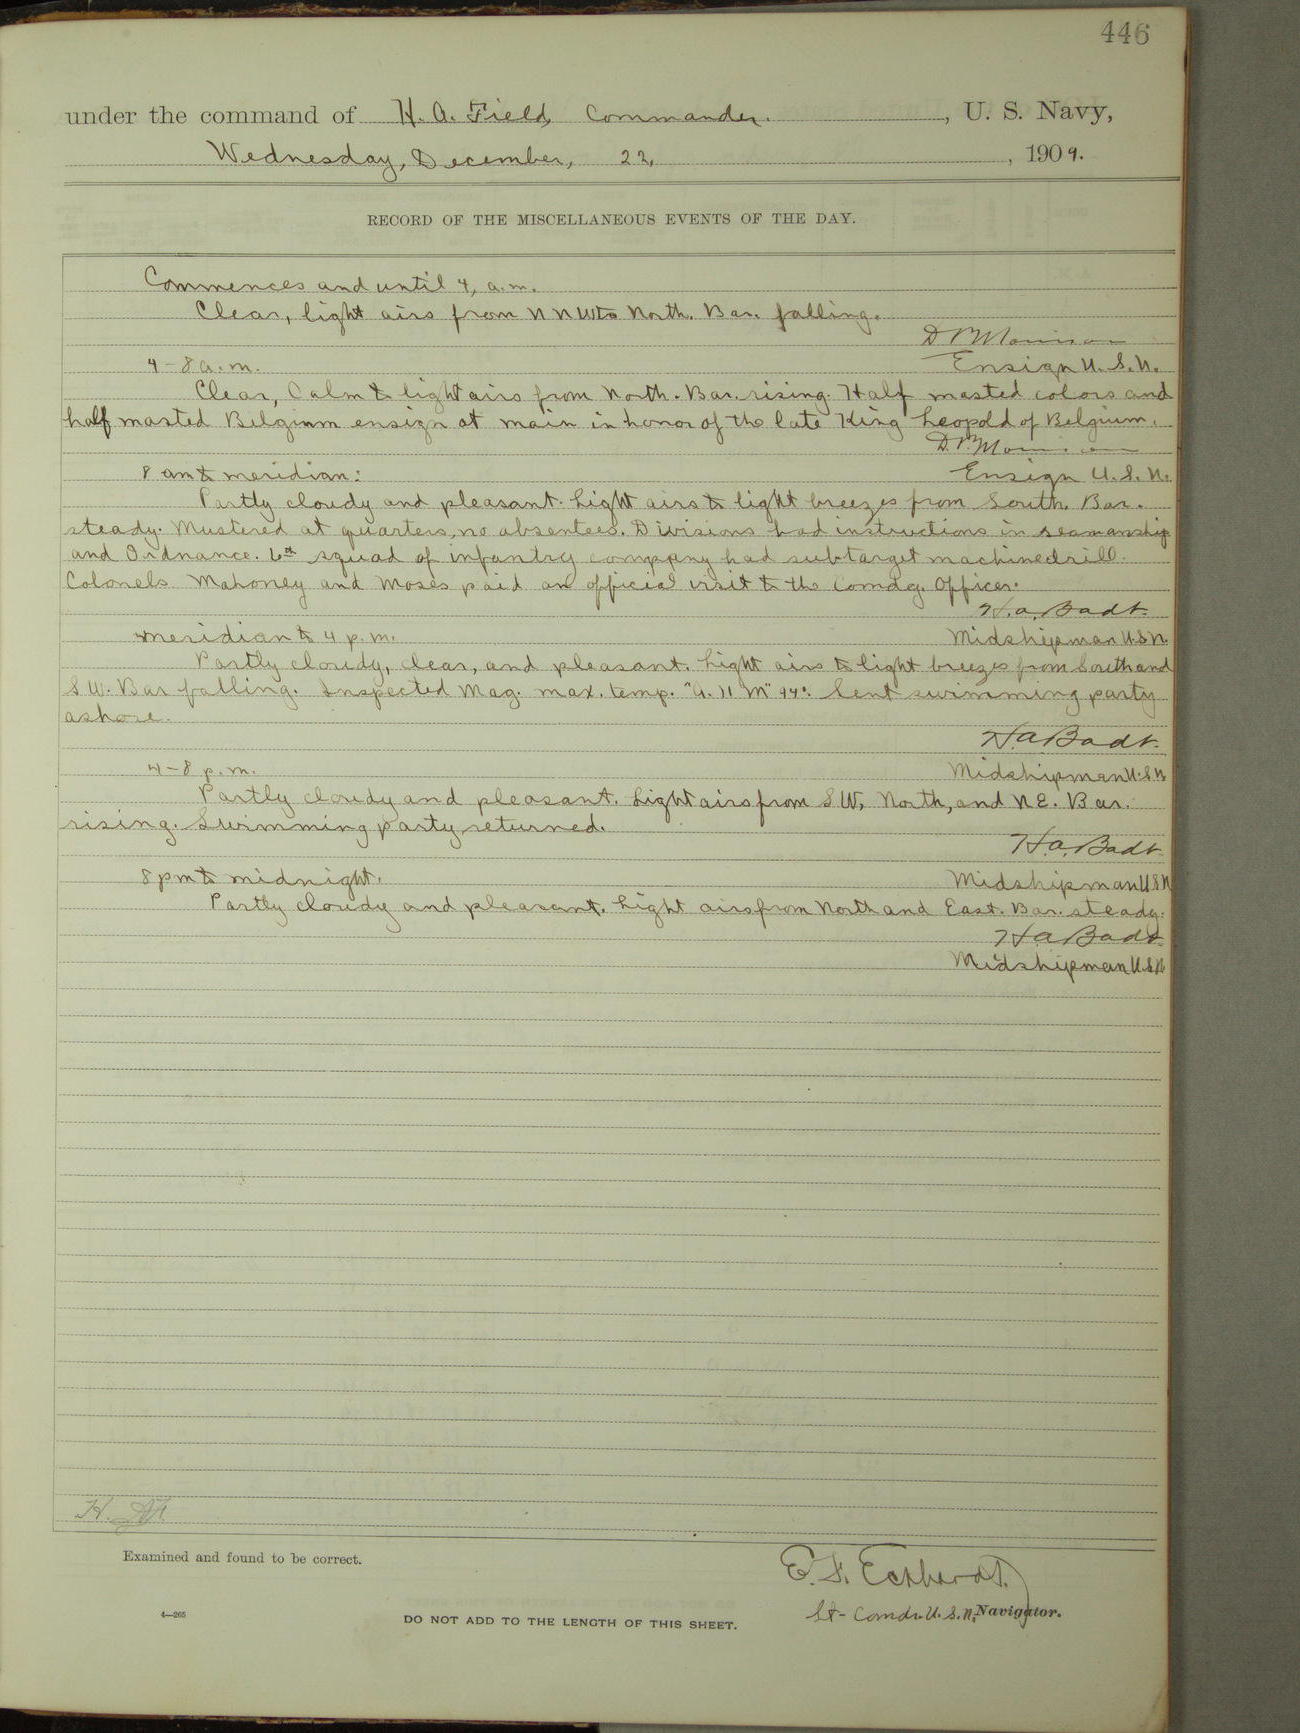 446
under the command of H. A. Field, Commander. , U. S. Navy,
Wednesday, December, 22, , 1909.
RECORD OF THE MISCELLANEOUS EVENTS OF THE DAY.
Commences and until 4, a.m.
Clear, light airs from NNW to North. Bar. falling.
Ensign U.S.N.
4-8 a.m.
Clear, Calm to light airs from North. Bar. rising. Half masted colors and
half masted Belgium ensign at main in honor of the late King Leopold of Belgium.
8 am to meridian:
Ensign U.S.N.
Partly cloudy and pleasant. Light airs to light breezes from South. Bar.
steady. Mustered at quarters, no absentees. Divisions had instructions in seamanship
and Ordnance. 6th squad of infantry company had subtarget machine drill.
Colonels Mahoney and Moses paid an official visit to the Comdg. Officer.
H.A. Badt.
meridian to 4 p.m.
Midshipman U.S.N.
Partly cloudy, clear, and pleasant. Light airs to light breezes from South and
S.W. Bar falling. Inspected Mag. max. temp. "A. 11 M" 94°. Sent swimming party
ashore.
H.A. Badt.
4-8 p.m.
Midshipman U.S.N.
Partly cloudy and pleasant. Light airs from S.W, North, and N.E. Bar.
rising. Swimming party returned.
H.A. Badt.
8 pm to midnight.
Midshipman U.S.N
Partly cloudy and pleasant. Light airs from North and East. Bar. steady.
H.A. Badt.
Midshipman U.S.N.
Examined and found to be correct.
E. F. Eckhardt.
Lt-Comdr. U.S.N, Navigator.
4—265
DO NOT ADD TO THE LENGTH OF THIS SHEET.